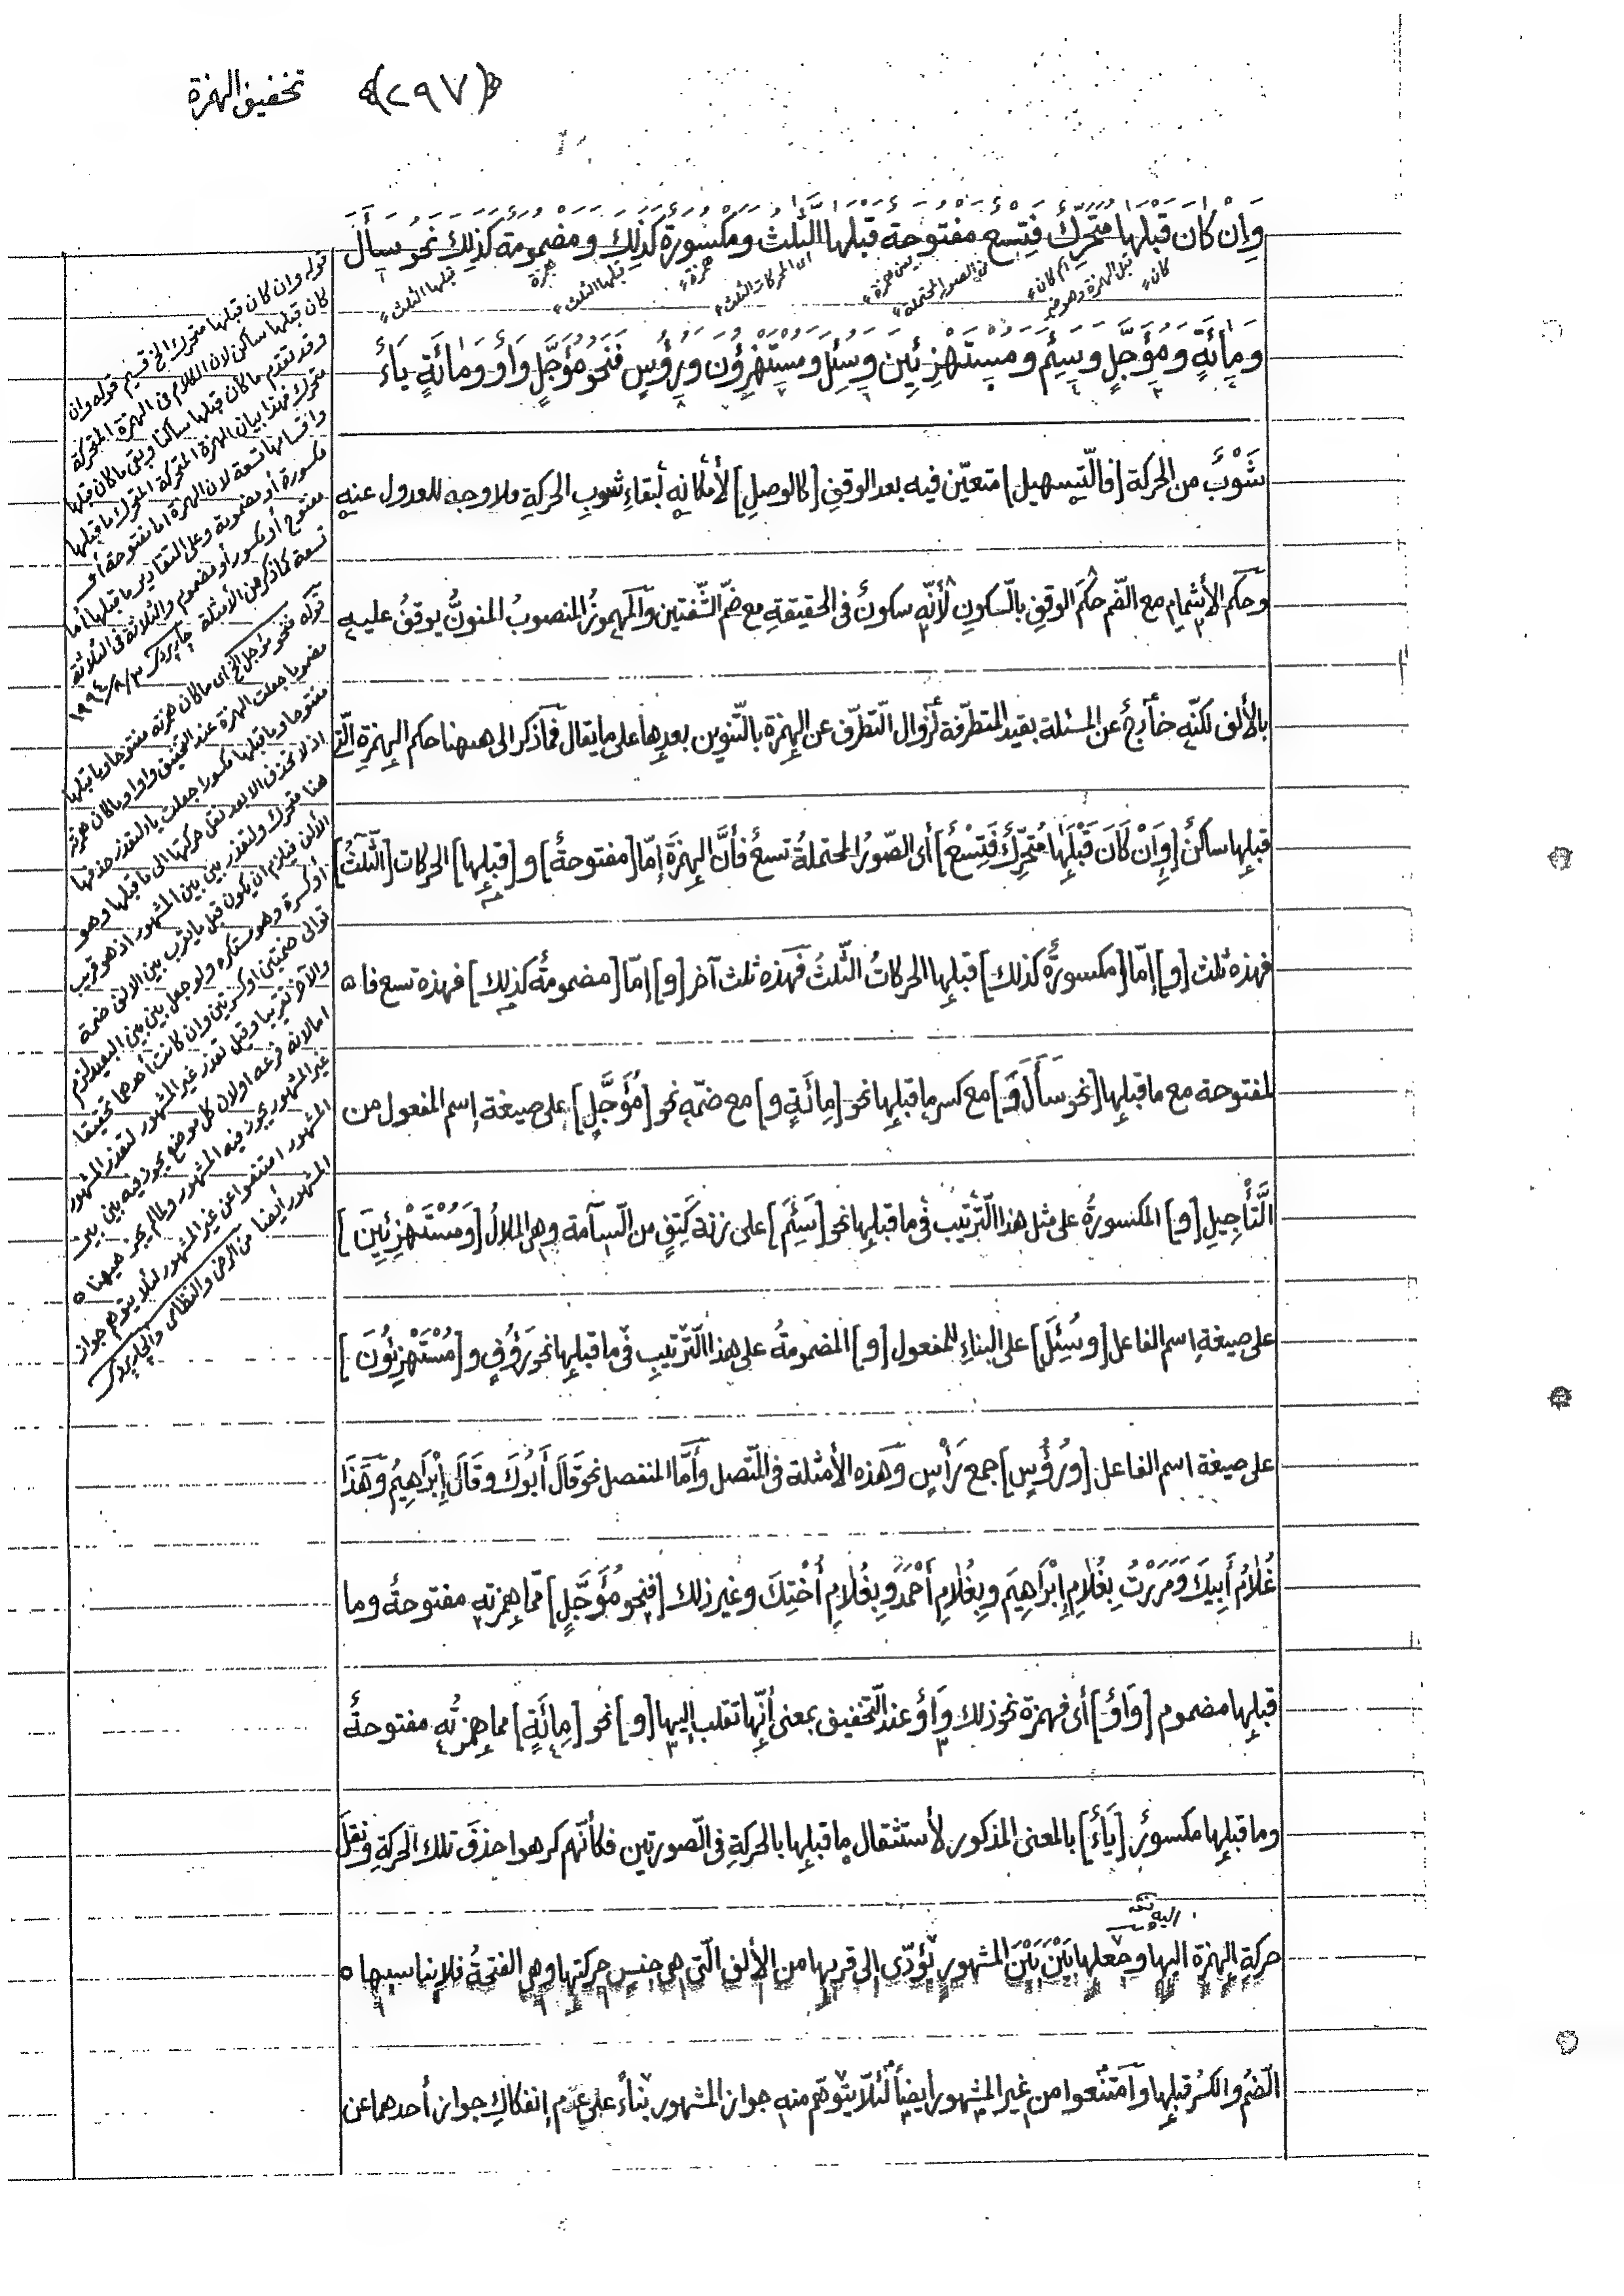 تخفيف الهمزة ﴿٢٩٧﴾
وَإِن كان قبلها متحرّك فتسع مفتوحة قبلها الثّلث ومكسورة كذلِك ومضمومة كذلك نحو سأَل
كان قبل الهمزة وهو ام كان من الصور المحتملة يعنى همزة اى الحركات الثلث همزة قبلها الثلث همزة قبلها الثلث
وَمِائَةٍ ومُؤَجَّلٍ وسَئِم ومستهزِئين وسُئِل ومستهزِؤُن ورؤُسٍ فنحو مُؤَجَّلٍ وَاوٌ ومِائَةٍ يَاءٌ
شَوْبٌ من الحركة [فالتّسهيل] متعيّن فيه بعد الوقف [كالوصلِ] لأمكانِه لبقاءِ شوبِ الحركةِ فلا وجه للعدول عنه
وحكم الأشمام مع الضّم حكم الوقف بالسّكون لأنّه سكونٌ فى الحقيقةِ مع ضمّ الشّفتين والمهموزُ المنصوبُ المنوّنُ يوقفُ عليه
بالألف لكنّه خارجٌ عن المسئلة بقيد المتطرّفة لزوال التّطرّف عن الهمزة بالتّنوين بعدها على ما يقال فما ذكر الى ههنا حكم الهمزةِ الّتى
قبلها ساكنٌ [وَإِنْ كَانَ قَبْلَهَا مُتَحَرِّكٌ فَتِسْعٌ] أى الصّورُ المحتملةُ تسعٌ فأنّ الهمزةَ إمّا [مفتوحةٌ] و[قبلها] الحركات [الثّلثُ]
فهذه ثلث [و] إمّا [مكسورةٌ كذلك] قبلها الحركاتُ الثّلثُ فهذه ثلث آخر [و] إمّا [مضمومةٌ كذلِك] فهذه تسع فا ۵
لمفتوحة مع ما قبلها [نحو سأَلَ وَ] مع كسر ما قبلها نحو [مِائَةٍ و] مع ضمّه نحو [مُؤَجَّلٍ] على صيغة إسم المفعول من
التَّأْجِيلِ [و] المكسورةُ على مثل هذا التّرتيب فى ما قبلها نحو [سَئِمَ] على زنة كَتِفٍ من السّآمة وهى الملالُ [وَمُسْتَهْزِئِينَ]
على صيغةِ اسم الفاعل [وسُئِلَ] على البناءِ للمفعول [و] المضمومةُ على هذا التّرتيبِ فى ما قبلها نحو رَؤُفٍ و[مُسْتَهْزِئُونَ]
على صيغة اسم الفاعل [ورُؤُسٍ] جمع رَأْسٍ وهذه الأمثلة فى المتّصل وأَمَّا المنفصل نحو قَالَ أَبُوكَ وقَالَ إِبْرَاهِيمُ وَهَذَا
غُلَامُ أَبِيكَ وَمَرَرْتُ بِغُلَامِ إِبْرَاهِيمَ وبِغُلَامِ أَحْمَدَ وبِغُلَامِ أُخْتِكَ وغير ذلك [فنحو مُؤَجَّلٍ] ممّا همزته مفتوحةٌ وما
قبلها مضموم [وَاوٌ] أى فهمزة نحو ذلك وَاوٌ عند التّخفيف بمعنى أنّها تقلب إليها [و] نحو [مِائَةٍ] مما همزتُه مفتوحةٌ
وما قبلها مكسورٌ [يَاءٌ] بالمعنى المذكور لأستثقال ما قبلها بالحركةِ فى الصّورتين فكأنّهم كرهوا حذفَ تلك الحركةِ ونقلَ
اليه
حركةِ الهمزة اليها وجعلها بَيْنَ بَيْنَ المشهور يُؤدّى الى قربها من الألف الّتى هى جنس حركتها وهى الفتحةُ فلا يناسبها ۵
الضّمُ والكسرُ قبلها وامتنعوا من غير المشهور أيضاً لئلّا يتوهّم منه جواز المشهور بناءً على عدم إنفكاك جواز أحدهما عن
قوله وان كان قبلها متحرك الخ قسيم قوله وان
كان قبلها ساكن لان الكلام فى الهمزة المتحركة
وقد تقدم ما كان قبلها ساكنا وبقى ما كان قبلها
متحرك فهذا بيان الهمزة المتحركة المتحرك ما قبلها
واقسامها تسعة لان الهمزة اما مفتوحة أو
مكسورة أو مضمومة وعلى التقادير ما قبلها أما
مفتوح أو مكسور أو مضموم والثلاثة فى الثلاثة
تسعة كما ذكر من الأمثلة جاربردى ١٩٩٤/٨/٣
قوله فنحو مؤجل الخ اى ما كان همزته مفتوحا وما قبلها
مضموما جعلت الهمزة عند التخفيف واوا وما كان همزته
مفتوحا وما قبلها مكسورا جعلت ياء لتعذر حذفها
اذ لا تحذف الا بعد نقل حركتها الى ما قبلها وهو
هنا متحرك ولتعذر بين بين المشهور اذ هو قريب
الألف فيلزم ان يكون قبل ما يقرب بين الالف ضمة
أو كسرة وهو مستكره ولو جعل بين بين البعيد لزم
توالى ضمتين او كسرتين وان كانت أحدهما تحقيقا
والآخر تقريبا وقيل تعذر غير المشهور لتعذر المشهور
اما لانه فرعه او لان كل موضع يجوز فيه بين بين
غير المشهور يجوز فيه المشهور ولما لم يجز ههنا ۵
المشهور امتنعوا عن غير المشهور لئلا يتوهم جواز
المشهور أيضا من الرضى والنظام والجاربردى